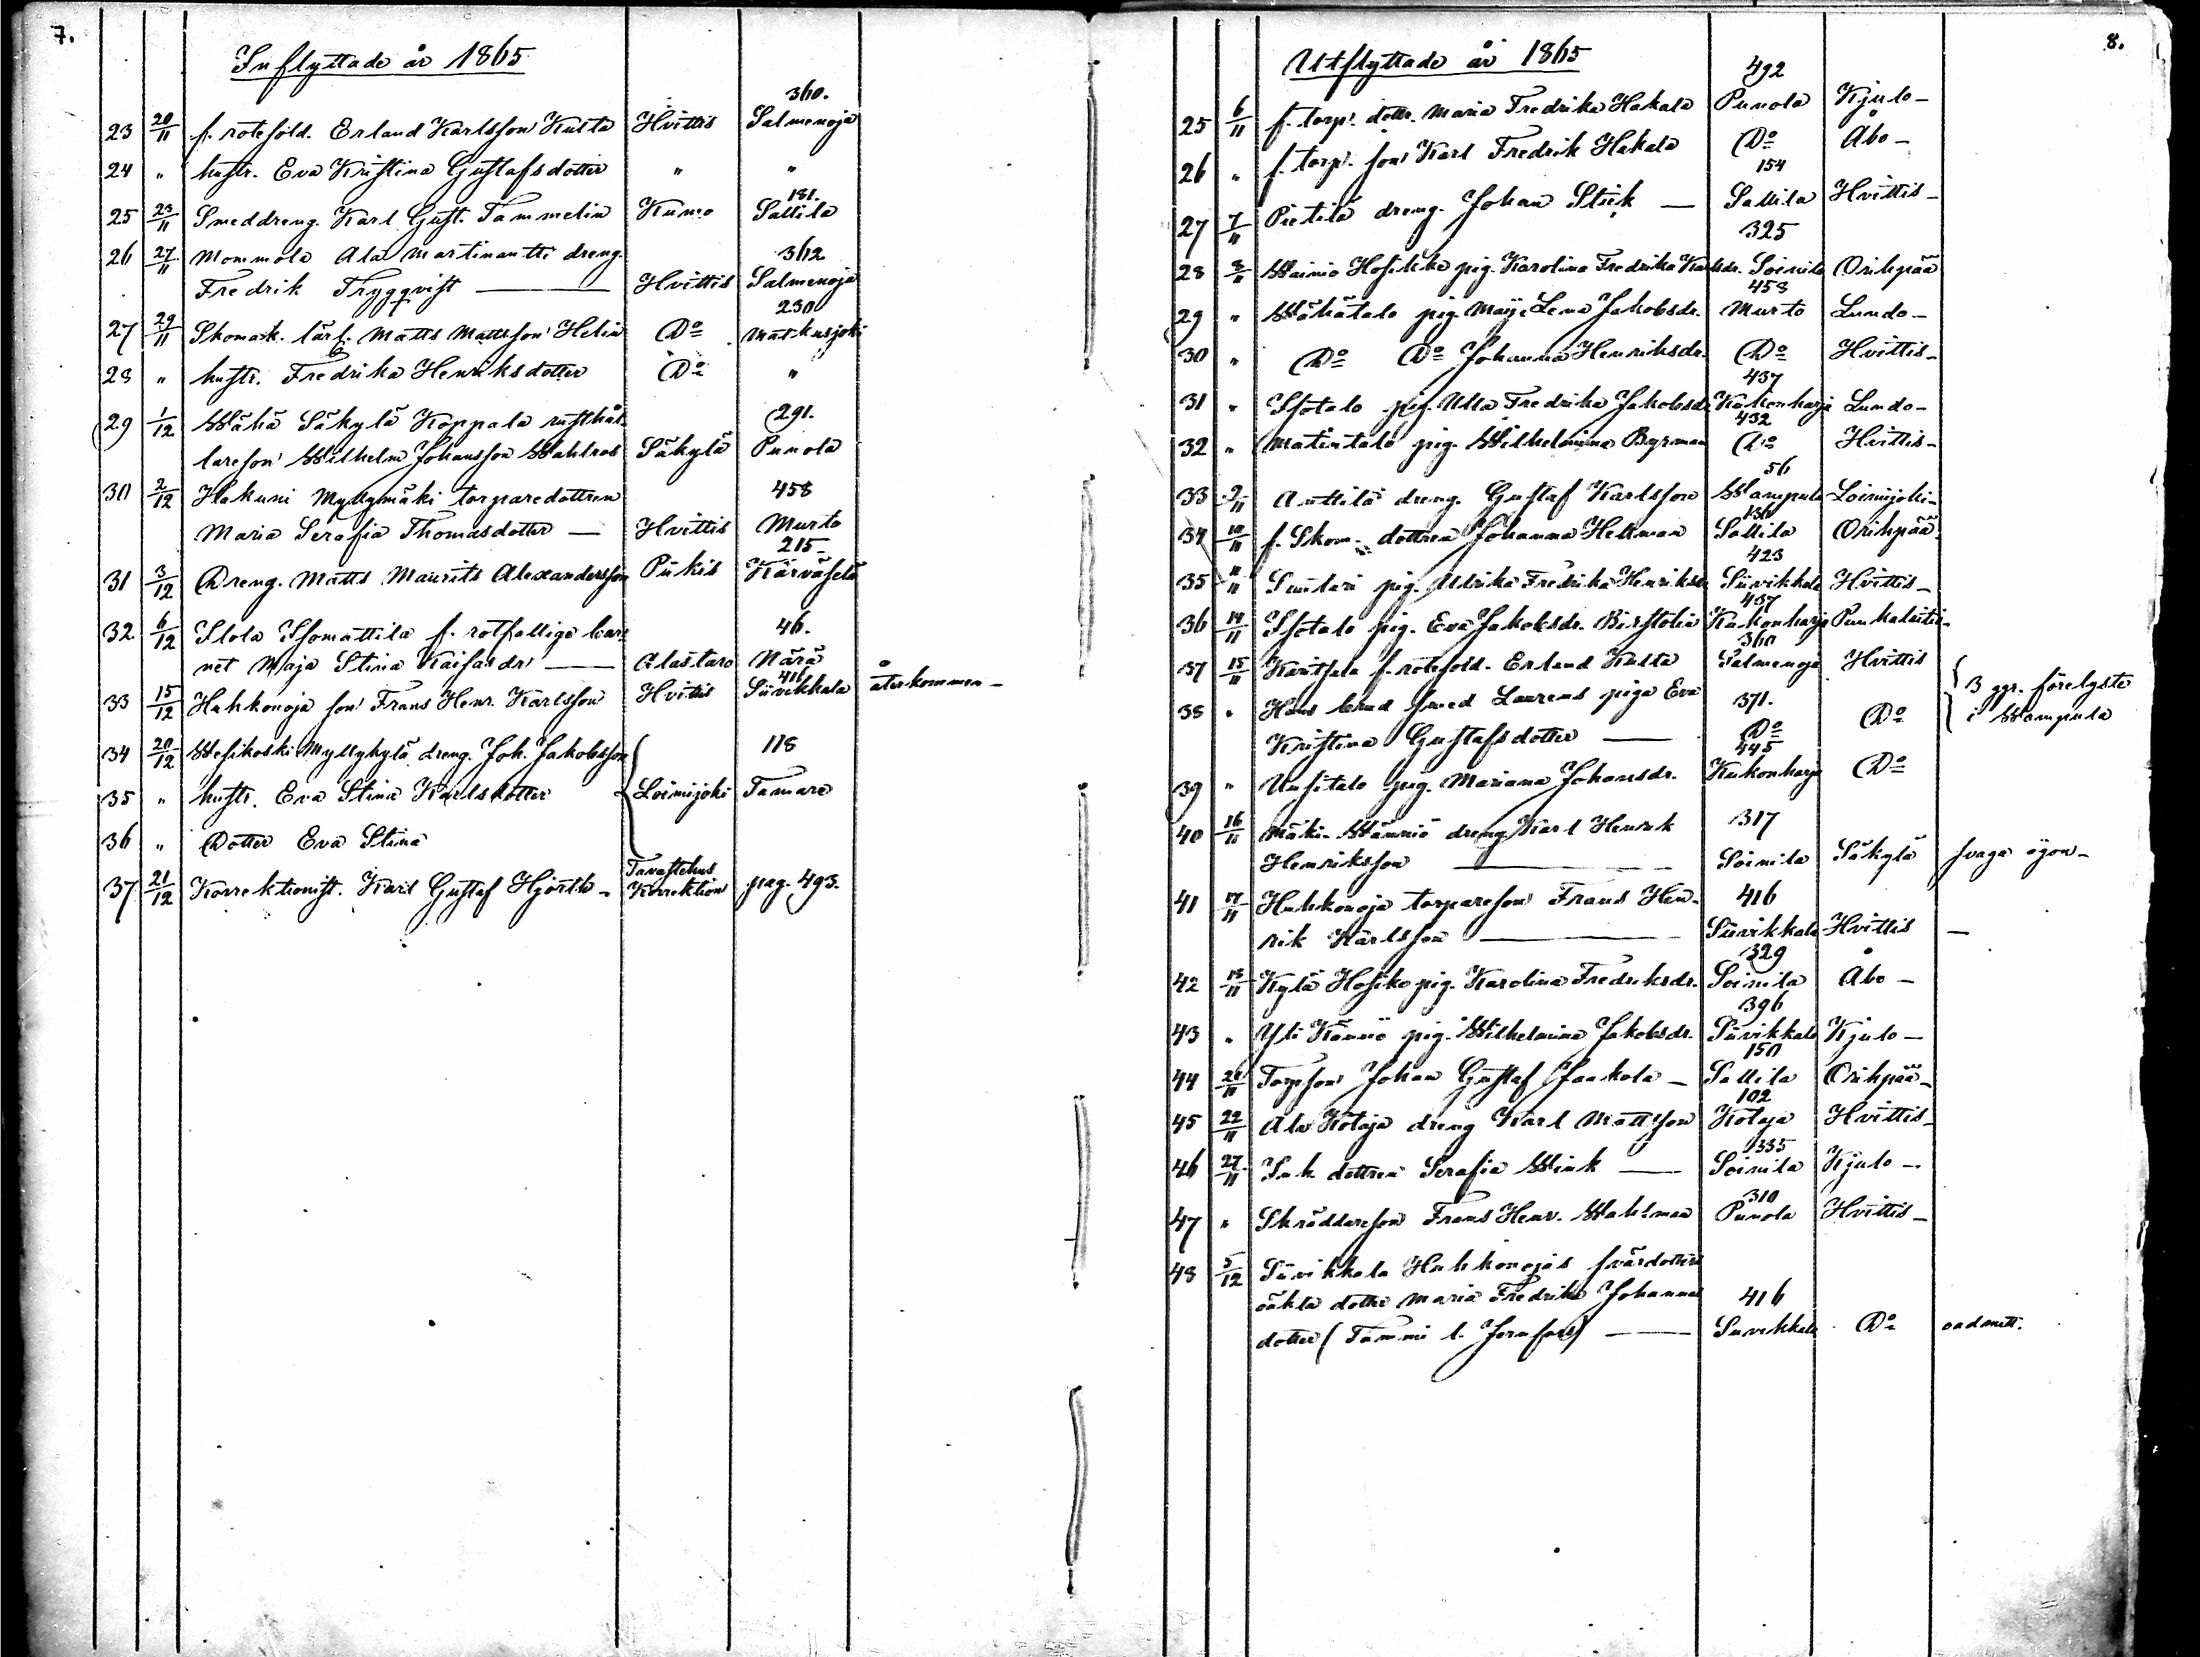 7.
Inflyttade år 1865
360.
23 20/11 f. rotesold. Erland Karlsson Kulta Hvittis Salmenoja
24 " hustr. Eva Kristina Gustafsdotter " "
181.
25 23/11 Smeddreng. Karl Gust. Tammelin Kumo Sallila
26 27/11 Mommola Ala Martinantti dreng. 362
Fredrik Tryggqvist — Hvittis Salmenoja
230
27 29/11 Skomak. lärl. Matts Mattsson Helin Do Matkusjoki
28 " hustr. Fredrika Henriksdotter Do "
29 1/12 Wähä Säkylä Koppala rusthål 291.
lareson Wilhelm Johansson Wahlros Säkylä Punola
30 2/12 Hakuni Myllymäki torparedottren 458
Maria Serafia Thomasdotter — Hvittis Murto
215
31 3/12 Dreng. Matts Maurits Alexandersson Pükis Kärväselä
32 6/12 Stola Isomattila f. rotfattiga bar= 46.
net Maja Stina Kaisasdr — Alastaro Närä
416
33 15/12 Huhkonoja son Frans Henr. Karlsson Hvittis Süvikkala återkommen —
34 20/12 Wesikoski Myllykylä dreng. Joh. Jakobsson 118
35 " hustr. Eva Stina Karlsdotter Loimijoki Tamare
36 " Dotter Eva Stina
37 21/12 Korrektionist. Karl Gustaf Hjorth — Tavastehus Korrektion pag. 493.
8.
Utflyttade år 1865
492
25 6/11 f. torp. dottr. Maria Fredrika Hakala Punola Kjulo —
26 " f. torp. son Karl Fredrik Hakala Do Åbo —
154
27 7/11 Pietilä dreng. Johan Stick — Sallila Hvittis —
325
28 8/11 Wainio Hosikka pig. Karolina Fredrika Karlsdr. Soinila Orihpää
458
29 " Wähätalo pig. Maija Lena Jakobsdr. Murto Lundo —
30 " Do Do Johanna Henriksdr. Do Hvittis —
437
31 " Isotalo pig. Ulla Fredrika Jakobsdr. Kukonharja Lundo —
432
32 " Matintalo pig. Wilhelmina Byrman Do Hvittis —
56
33 9/11 Anttila dreng. Gustaf Karlsson Wampula Loimijoki —
136
34 10/11 f. Skom. dottren Johanna Hellman Sallila Orihpää
423
35 11/11 Suutari pig. Ulrika Fredrika Henriksdr Süvikkala Hvittis —
437
36 14/11 Isotalo pig. Eva Jakobsdr. Kukonharja Punkalaitio —
360
37 15/11 f. rotesold. Erland Kulta Salmenoja Hvittis
38 " Hans brud smed Laurens piga Eva 371.
Kristina Gustafsdotter — Do Do { 3 ggr. förelyste i Wampula
445
39 " Uusitalo pig. Mariana Johansdr. Kukonharja Do
40 16/11 Mäki Wänniö dreng Karl Henrik 317
Henriksson — Soinila Säkylä svaga ögon —
41 17/11 Huhkonoja torpareson Frans Hen- 416
rik Karlsson — Süvikkala Hvittis —
329
42 18/11 Kylä Hosiko pig. Karolina Fredriksdr. Soinila Åbo —
396
43 " Yli Kännö pig. Wilhelmina Jakobsdr. Süvikkala Kjulo —
150
44 20/11 Torpson Johan Gustaf Jaakola — Sallila Orihpää —
102
45 22/11 Ala Kotaja dreng Karl Mattsson Kotaja Hvittis —
335
46 27/11 Inh. dottren Serafia Wink — Soinila Kjulo —
310
47 " Skräddareson Frans Henr. Wahlman Punola Hvittis —
48 5/12 Süvikkala Huhkonojas svärdotters
oäkta dotter Maria Fredrika Johanna 416
dotter (Tammi l. Jernfors) — Suvikkala Do oadmitt.